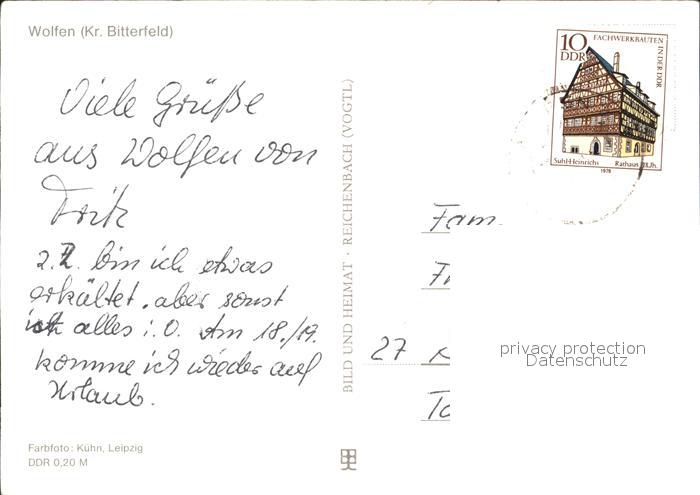 Wolfen (Kr. Bitterfeld)
Viele Grüße
aus Wolfen von
Fritz
z.Z. bin ich etwas
erkältet, aber sonst
ist alles i.O. Am 18./19.
komme ich wieder auf
Urlaub.
Farbfoto: Kühn, Leipzig
DDR 0,20 M
BILD UND HEIMAT · REICHENBACH (VOGTL)
10
DDR
FACHWERKBAUTEN IN DER DDR
Suhl-Heinrichs Rathaus
1978
Fam.
27
privacy protection
Datenschutz